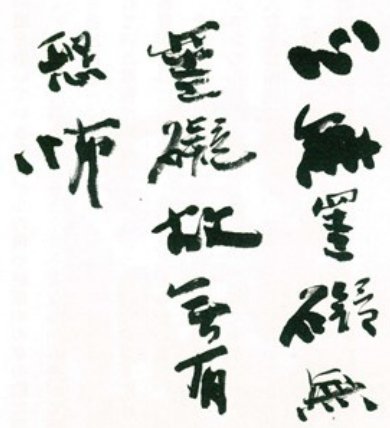 心無罣礙無
罣礙故無有
恐怖